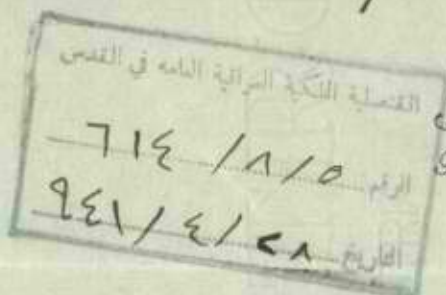 القنصلية الملكية العراقية العامه في القدس
الرقم ٥/٨/٦١٤
التاريخ ٢٨/٤/٩٤١